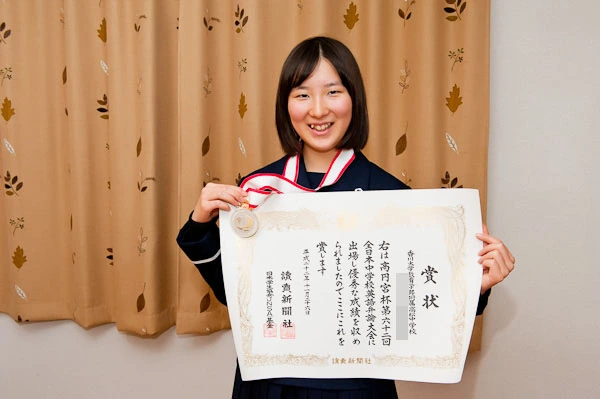 賞状
香川大学教育学部附属高松中学校
右は高円宮杯第六十二回
全日本中学校英語弁論大会に
出場し優秀な成績を収め
られましたのでここにこれを
賞します
平成二十二年十一月二十六日
讀賣新聞社
日本学生協会(JNSA)基金
讀賣新聞社